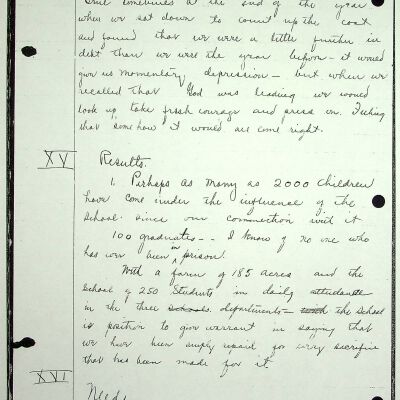 sometimes at the end of the year
when we sat down to count up the cost
and found that we were a little further in
debt than we were the year before - it would
give us momentary depression - but when we
recalled that God was leading we would
look up take fresh courage and press on. Feeling
that somehow it would all come right.
XV
Results.
1. Perhaps as many as 2000 children
have come under the influence of the
School since our connection with it
100 graduates -- I know of no one who
has ever been in prison.
With a farm of 185 acres and the
School of 250 Students in daily attendance
in the three schools departments - the School
is position to give warrant in saying that
we have been amply repaid for every sacrifice
that has been made for it.
XVI
Needs